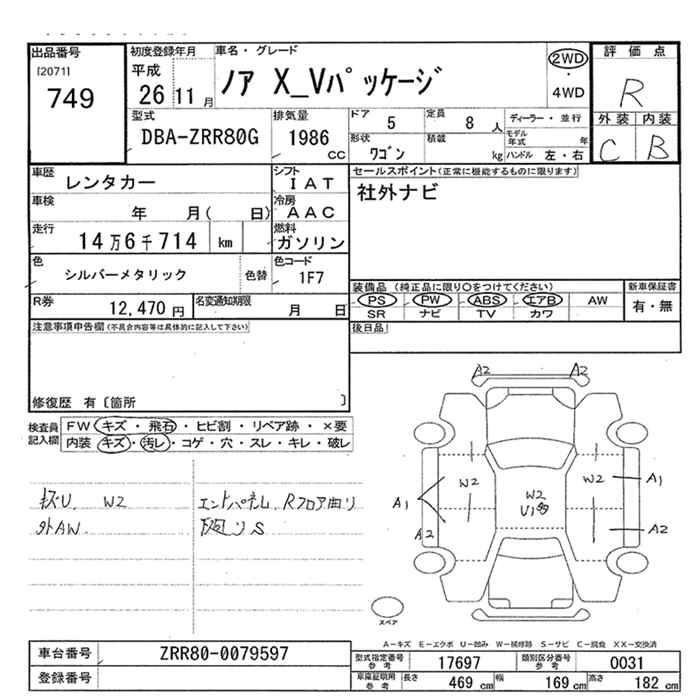 出品番号
[2071]
749
初度登録年月
平成
26 11 月
車名・グレード
ノア X_Vパッケージ
2WD
・
4WD
評価点
R
外装 内装
C B
型式
DBA-ZRR80G
排気量
1986
CC
ドア 5
定員 8 人
形状 ワゴン
積載 kg
ディーラー・並行
モデル年式 年
ハンドル 左・右
車歴 レンタカー
シフト IAT
車検 年 月( 日)
冷房 AAC
走行 14万6千714 km
燃料 ガソリン
色 シルバーメタリック
色替
色コード 1F7
R券 12,470円
名変通知期限 月 日
セールスポイント(正常に機能するものに限ります)
社外ナビ
装備品 (純正品に限り○をつけてください)
PS PW ABS エアB AW
SR ナビ TV カワ
新車保証書
有・無
後日品
注意事項申告欄(不具合内容等は具体的に記入して下さい)
修復歴 有〔箇所 〕
検査員記入欄
FW キズ・飛石・ヒビ割・リペア跡・×要
内装 キズ・汚レ・コゲ・穴・スレ・キレ・破レ
W2
外AW
エンドパネル Rフロア曲り
S
A2 A2
W2 W2 A1
A1
W2
U1多
A2 A2
スペア
A-キズ E-エクボ U-凹み W-補修跡 S-サビ C-腐食 XX-交換済
車台番号 ZRR80-0079597
登録番号
型式指定番号 参考 17697
類別区分番号 参考 0031
車庫証明用 参考 長さ 469 cm 幅 169 cm 高さ 182 cm